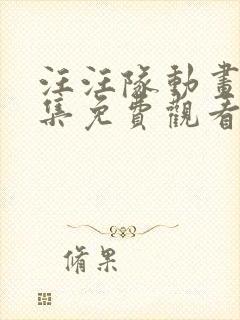 汪汪隊動畫
集免費觀看
脩果